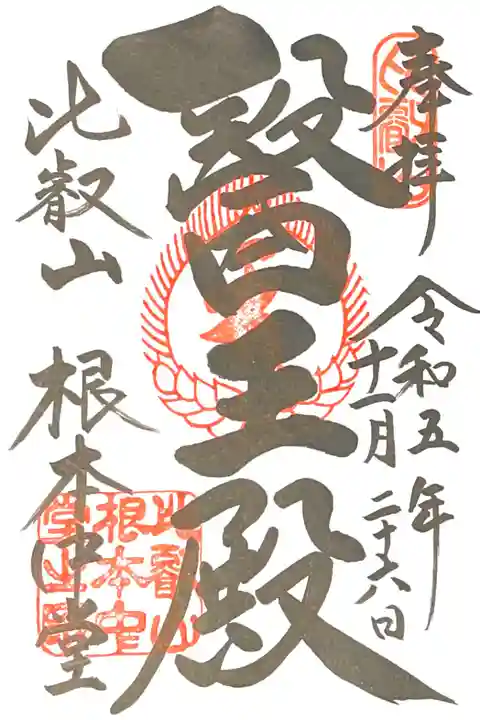 奉拝
比叡山
令和五年
十一月二十六日
醫王殿
比叡山 根本中堂
比叡山
根本中
堂之印